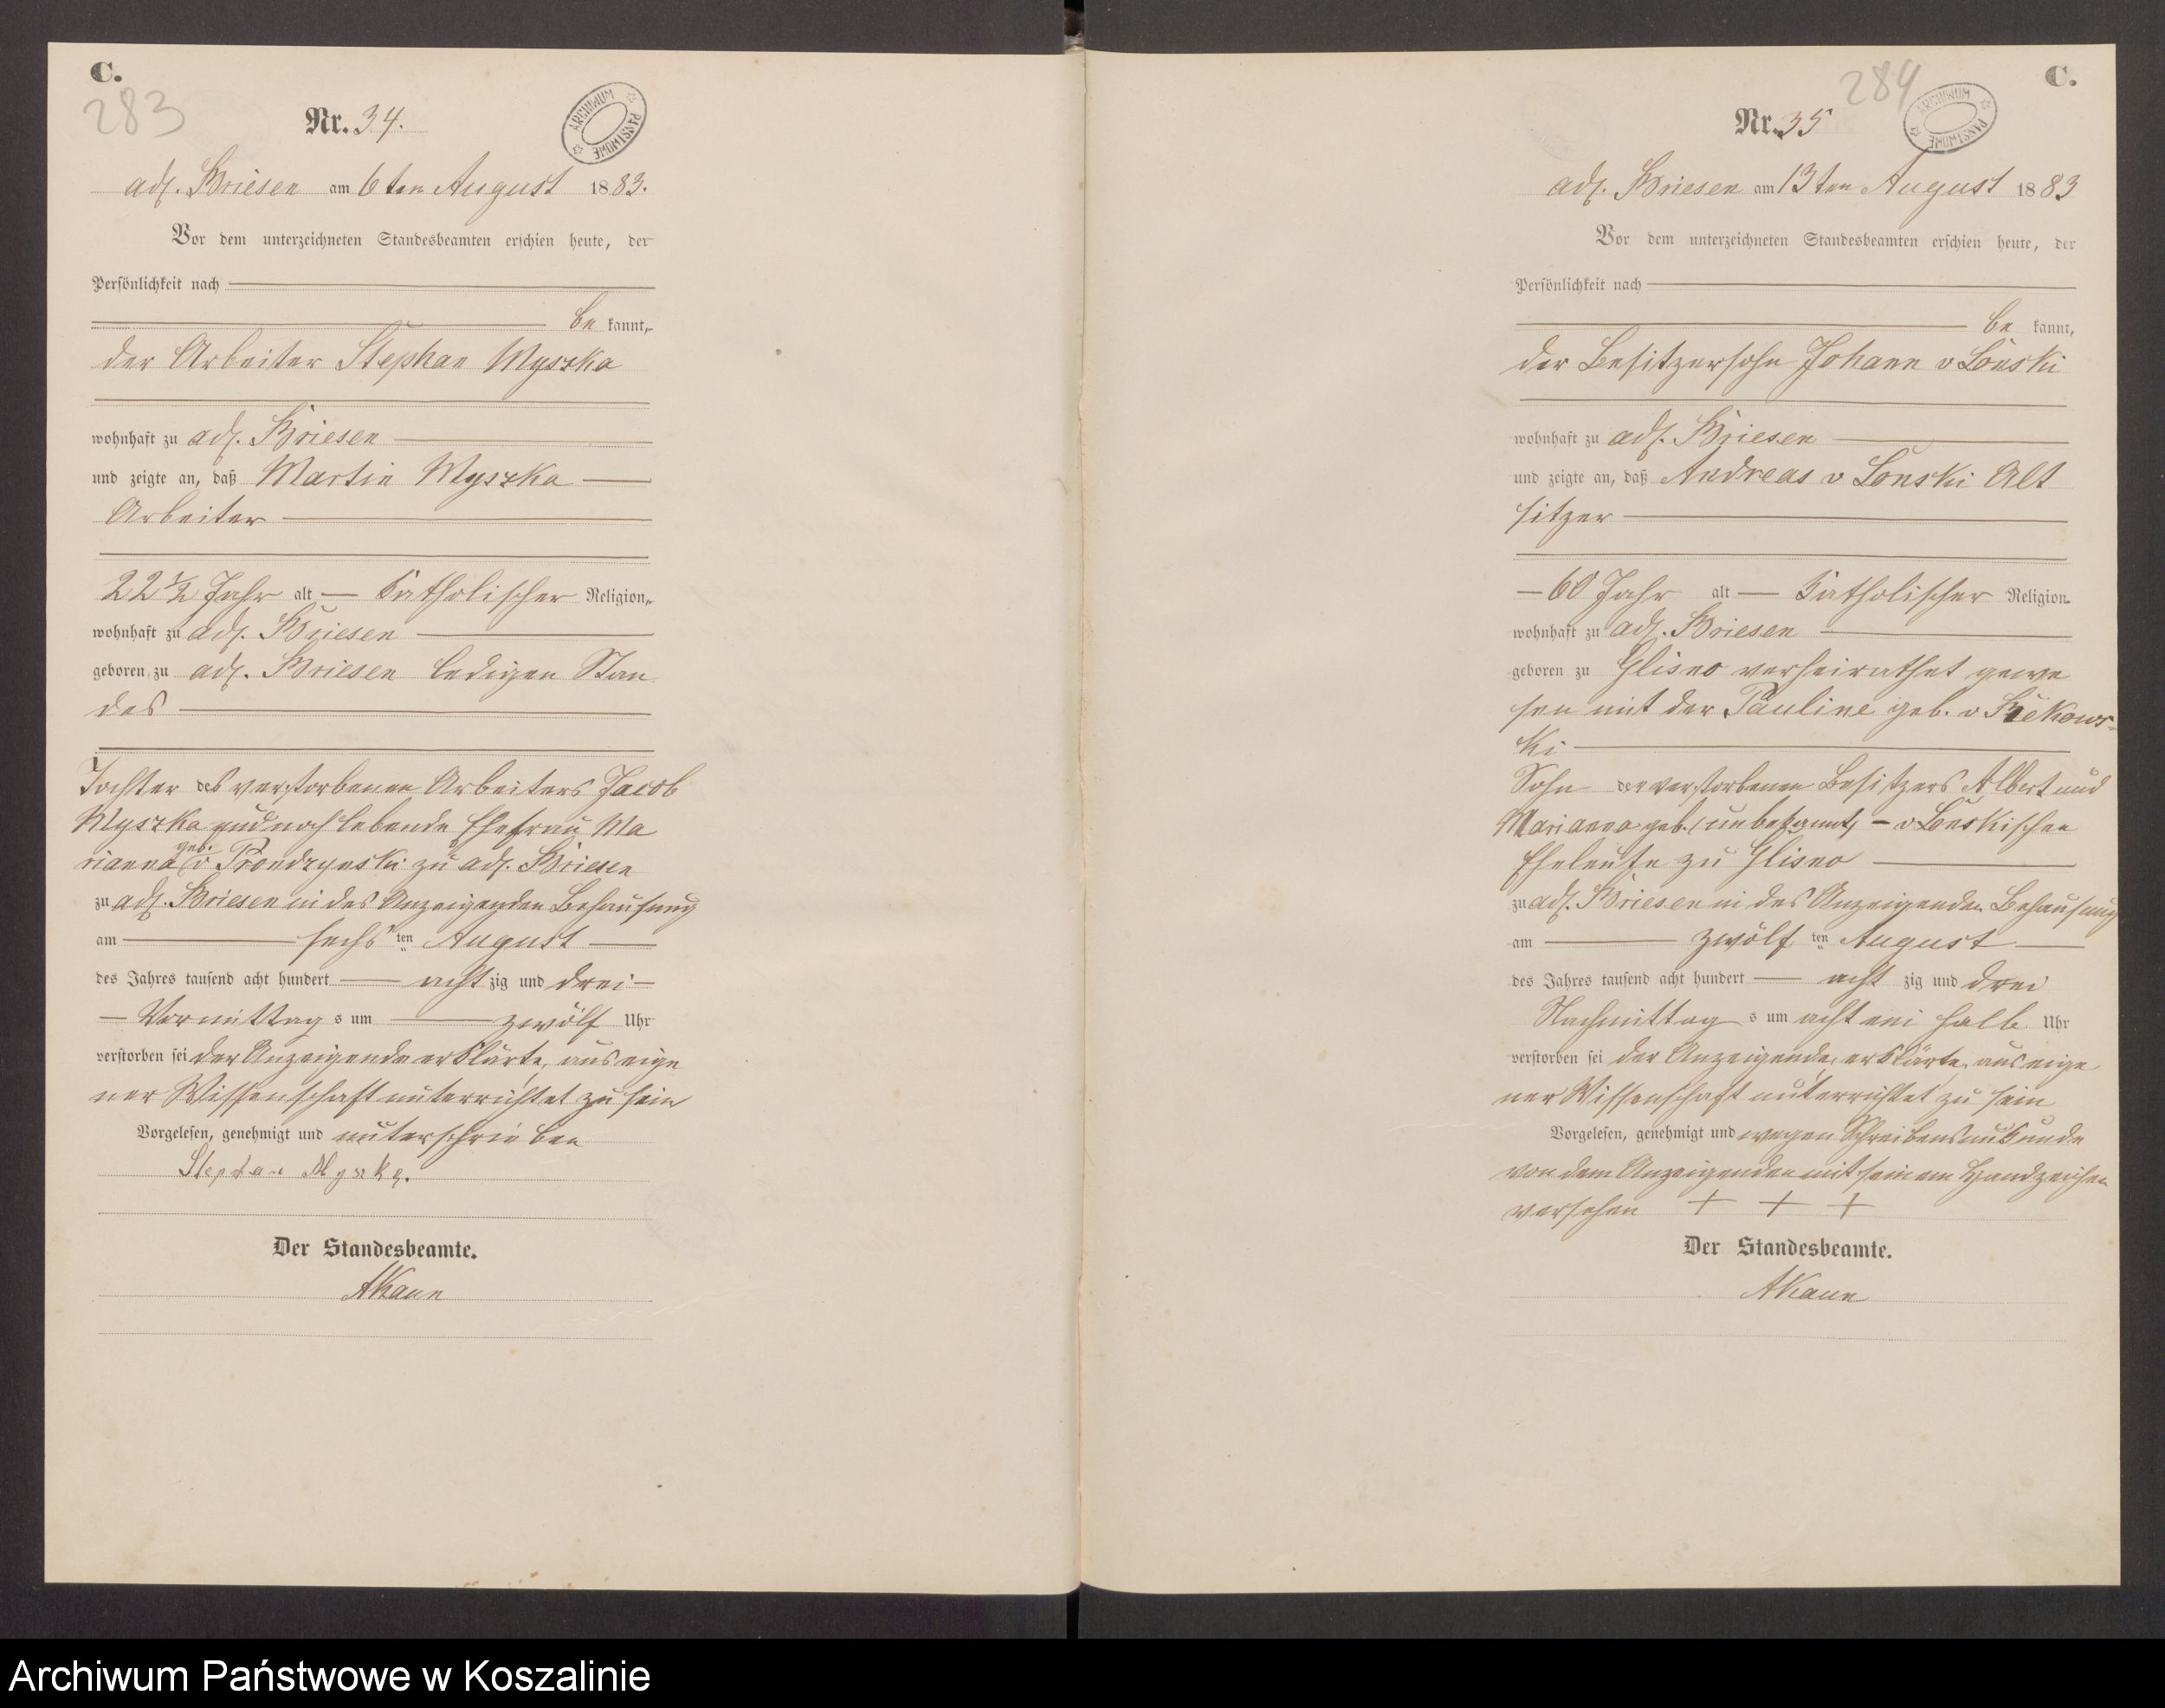 C.
283
Nr. 34.
ARCHIWUM PAŃSTWOWE
adl. Briesen am 6ten August 1883.
Vor dem unterzeichneten Standesbeamten erschien heute, der
Persönlichkeit nach
be kannt,
der Arbeiter Stephan Myszka
wohnhaft zu adl. Briesen
und zeigte an, daß Martin Myszka
Arbeiter
22 1/2 Jahr alt Katholischer Religion,
wohnhaft zu adl. Briesen
geboren zu adl. Briesen ledigen Stan
des
Tochter des verstorbenen Arbeiters Jacob
Myszka und noch lebende Ehefrau Ma
rianna geb. v Prondzynski zu adl. Briesen
zu adl. Briesen in des Anzeigenden Behausung
am sechs ten August
des Jahres tausend acht hundert acht zig und drei
Vormittag s um zwölf Uhr
verstorben sei der Anzeigende erklärte, aus eige
ner Wissenschaft unterrichtet zu sein
Vorgelesen, genehmigt und unterschrieben
Stephan Myszka.
Der Standesbeamte.
AKaun
C.
284
Nr. 35
ARCHIWUM PAŃSTWOWE
adl. Briesen am 13ten August 1883
Vor dem unterzeichneten Standesbeamten erschien heute, der
Persönlichkeit nach
be kannt,
der Besitzersohn Johann v Lonski
wohnhaft zu adl. Briesen
und zeigte an, daß Andreas v Lonski Alt
sitzer
60 Jahr alt Katholischer Religion
wohnhaft zu adl. Briesen
geboren zu Glisno verheirathet gewe
sen mit der Pauline geb. v Kiekows-
ki
Sohn der verstorbenen Besitzers Albert und
Marianna geb. (unbekannt) - v Lonskischen
Eheleute zu Glisno
zu adl. Briesen in des Anzeigenden Behausung
am zwölf ten August
des Jahres tausend acht hundert acht zig und drei
Nachmittag s um acht ein halb Uhr
verstorben sei der Anzeigende, erklärte, aus eige
ner Wissenschaft unterrichtet zu sein
Vorgelesen, genehmigt und wegen Schreibensunkunde
von dem Anzeigenden mit seinem Handzeichen
versehen + + +
Der Standesbeamte.
AKaun
Archiwum Państwowe w Koszalinie